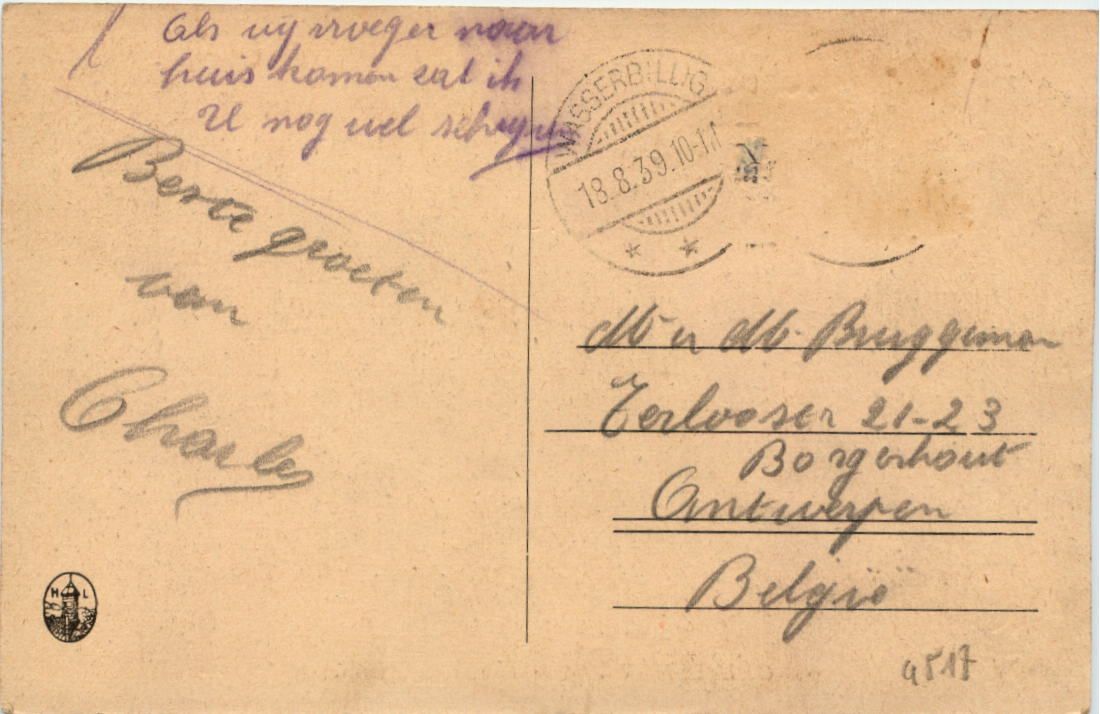 Als wy vroeger naar
huis komen zal ik
U nog wel schryven
Beste groeten
van
Charles
WASSERBILLIG
18.8.39.10-11
Mr en Md. Bruggeman
Terlooser 21-23
Borgerhout
Antwerpen
België
H L
4517